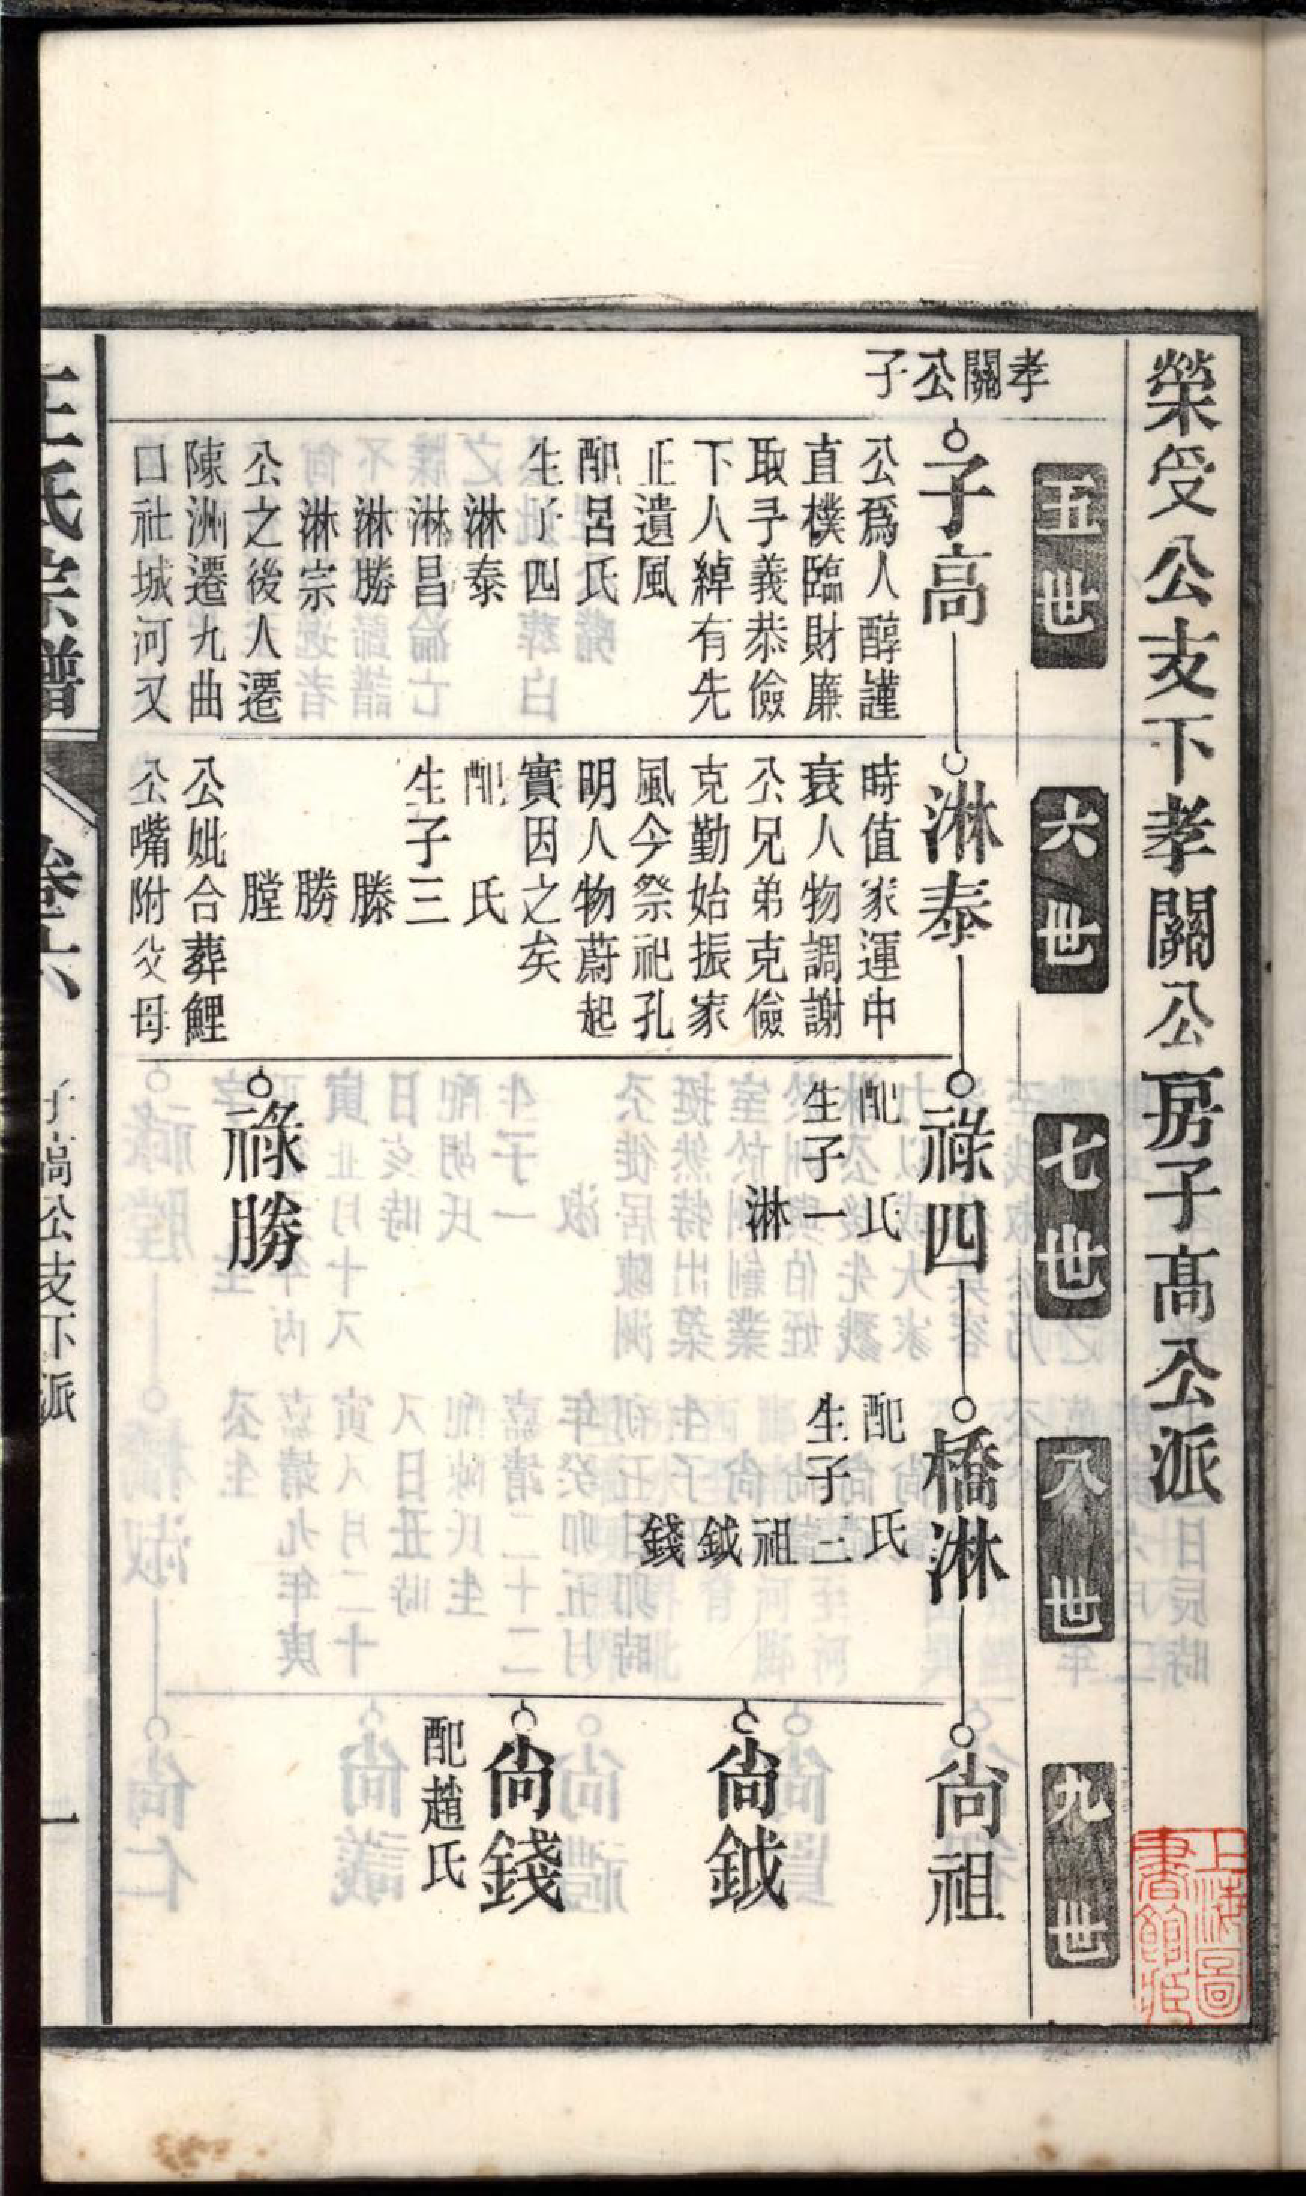 榮受公支下孝關公房子高公派
五世
六世
七世
八世
九世
孝關公子
子高
公爲人醇謹
直樸臨財廉
取予義恭儉
下人綽有先
正遺風
配呂氏
生子四
淋泰
淋昌
淋勝
淋宗
公之後人遷
陳洲遷九曲
口社城河又
淋泰
時值家運中
衰人物調謝
公兄弟克儉
克勤始振家
風今祭祀孔
明人物蔚起
實因之矣
配　氏
生子三
滕
勝
膛
公妣合葬鯉
公嘴附父母
祿四
配　氏
生子一
淋
祿勝
橋淋
配　氏
生子三
祖
鉞
錢
尚祖
尚鉞
尚錢
配趙氏
王氏宗譜
卷六
子高公支下派
一
上海圖
書館藏